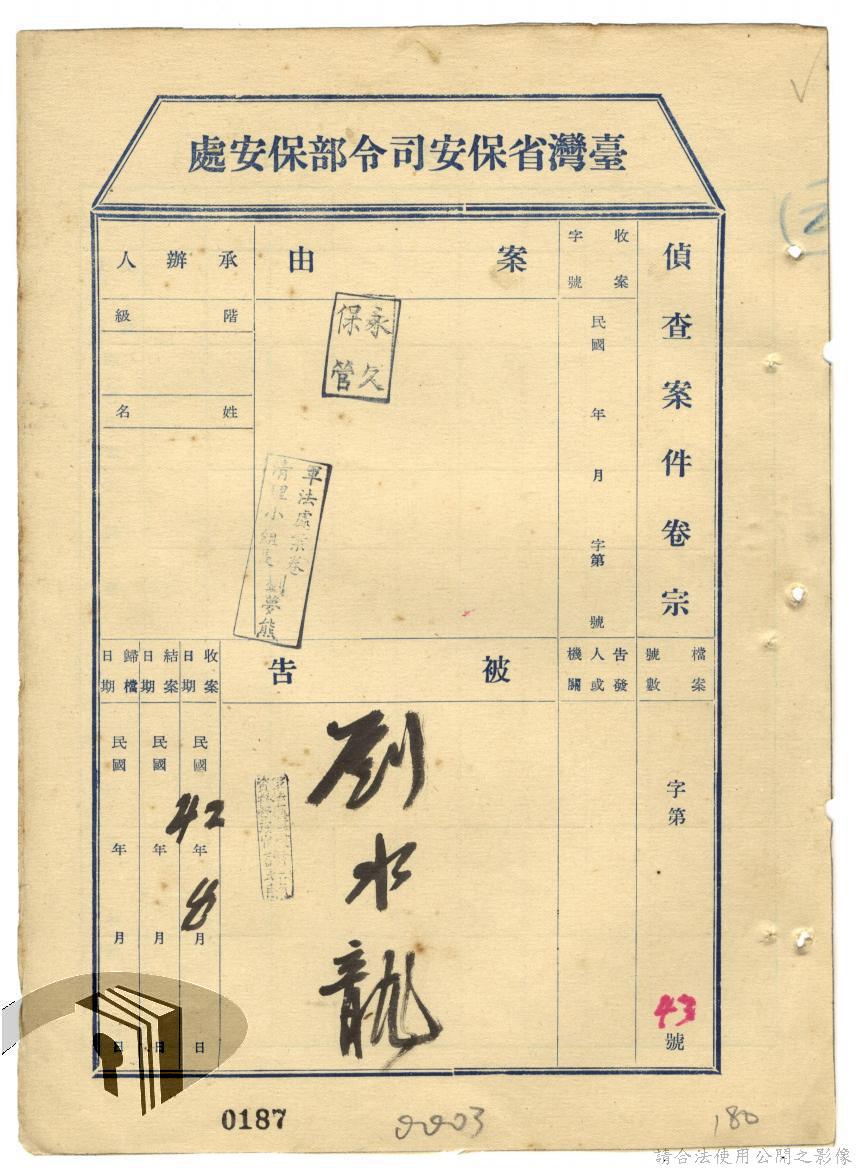 臺灣省保安司令部保安處
偵查案件卷宗
收案字號
民國 年 月 字第 號
案由
承辦人
階級
姓名
永久保管
軍法處案卷
清理小組長劉夢熊
檔案號數
字第
43
號
告發人或機關
被告
劉水龍
收案日期
民國 42 年 8 月 日
結案日期
民國 年 月 日
歸檔日期
民國 年 月 日
0187
0003
180
請合法使用公開之影像